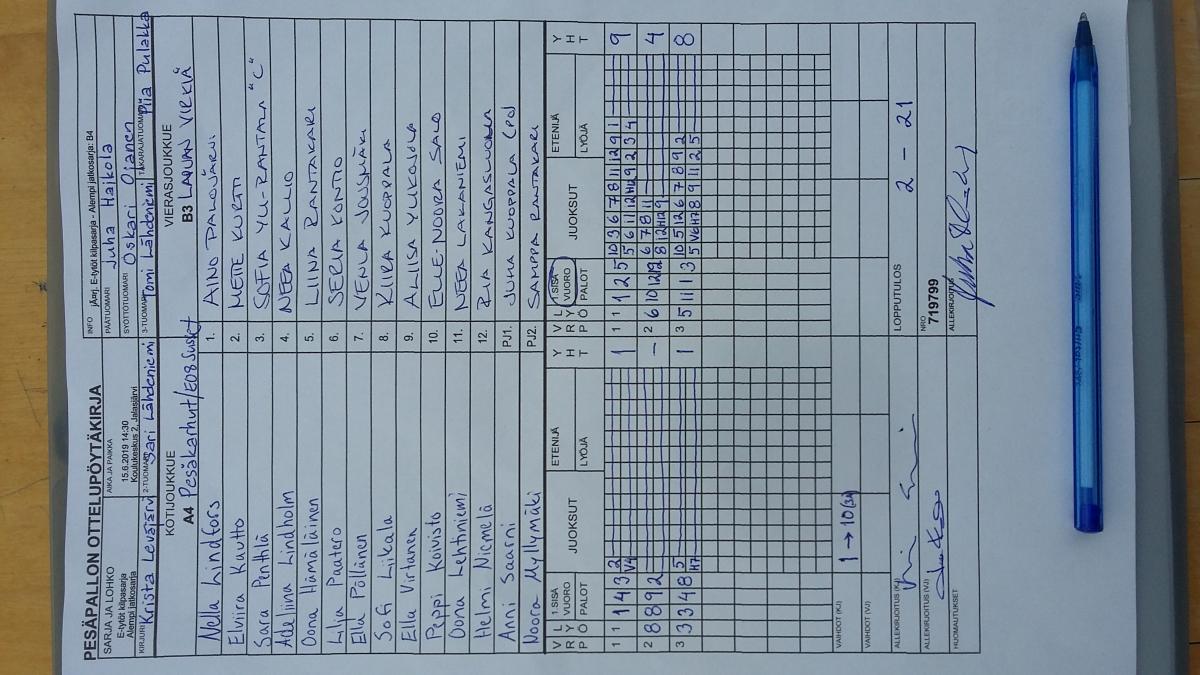 PESÄPALLON OTTELUPÖYTÄKIRJA
SARJA JA LOHKO
E-tytöt kilpasarja
Alempi jatkosarja
AIKA JA PAIKKA
15.6.2019 14:30
Koulukeskus 2, Jalasjärvi
INFO jÄarj. E-tytöt kilpasarja - Alempi jatkosarja: B4
PÄÄTUOMARI Juha Haikola
SYÖTTÖTUOMARI Oskari Ojanen
KIRJURI Krista Leusjärvi 2-TUOMARI Sari Lähdeniemi 3-TUOMARI Tomi Lähdeniemi TAKARAJATUOMARI Piia Pulakka
KOTIJOUKKUE
A4 Pesäkarhut/E08 Susket
VIERASJOUKKUE
B3 LAPUAN VIRKIÄ
Nella Lindfors 1. AINO PALOJÄRVI
Elviira Kautto 2. METTE KURTI
Sara Penttilä 3. SOFIA YLI-RANTALA "C"
Adeliina Lindholm 4. NEEA KALLIO
Oona Hämäläinen 5. LIINA RANTAKARI
Lilja Paatero 6. SERIA KONTIO
Ella Pöllänen 7. VENLA JOUSMÄKI
Sofi Liikala 8. KIIRA KUOPPALA
Ella Virtanen 9. ALIISA YLIKOJOLA
Peppi Koivisto 10. ELLE-NOORA SALO
Oona Lehtiniemi 11. NEEA LAKANIEMI
Helmi Niemelä 12. PIIA KANGASLUOMA
Anni Saarni PJ1. JUHA KUOPPALA (PJ)
Noora Myllymäki PJ2. SAMPPA RANTAKARI
V L
R Y
P Ö
1.SISÄ
VUORO
PALOT
JUOKSUT
ETENIJÄ
LYÖJÄ
Y
H
T
V L
R Y
P Ö
1.SISÄ
VUORO
PALOT
JUOKSUT
ETENIJÄ
LYÖJÄ
Y
H
T
1 1 1 4 3 2 1
V4
1 1 1 2 5 10 3 6 7 8 11 12 9 1 9
5 6 11 12 H12 9 2 3 4
2 8 8 9 2 -
2 6 10 12 12 6 7 8 11 4
8 12 H12 9
3 3 3 4 8 5 1
H7
3 5 11 1 3 10 5 12 6 7 8 9 2 8
5 V6 H7 8 9 11 2 5
VAIHDOT (KJ) 1 → 10
VAIHDOT (VJ)
LOPPUTULOS 2 - 21
ALLEKIRJOITUS (KJ)
ALLEKIRJOITUS (VJ)
NRO
719799
HUOMAUTUKSET
ALLEKIRJOITUS